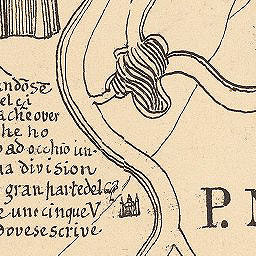 andost
el cā
ache over
he ho
ad occhio un-
ua division
gran parte del
e une cinque V
dove se scrive
P. N